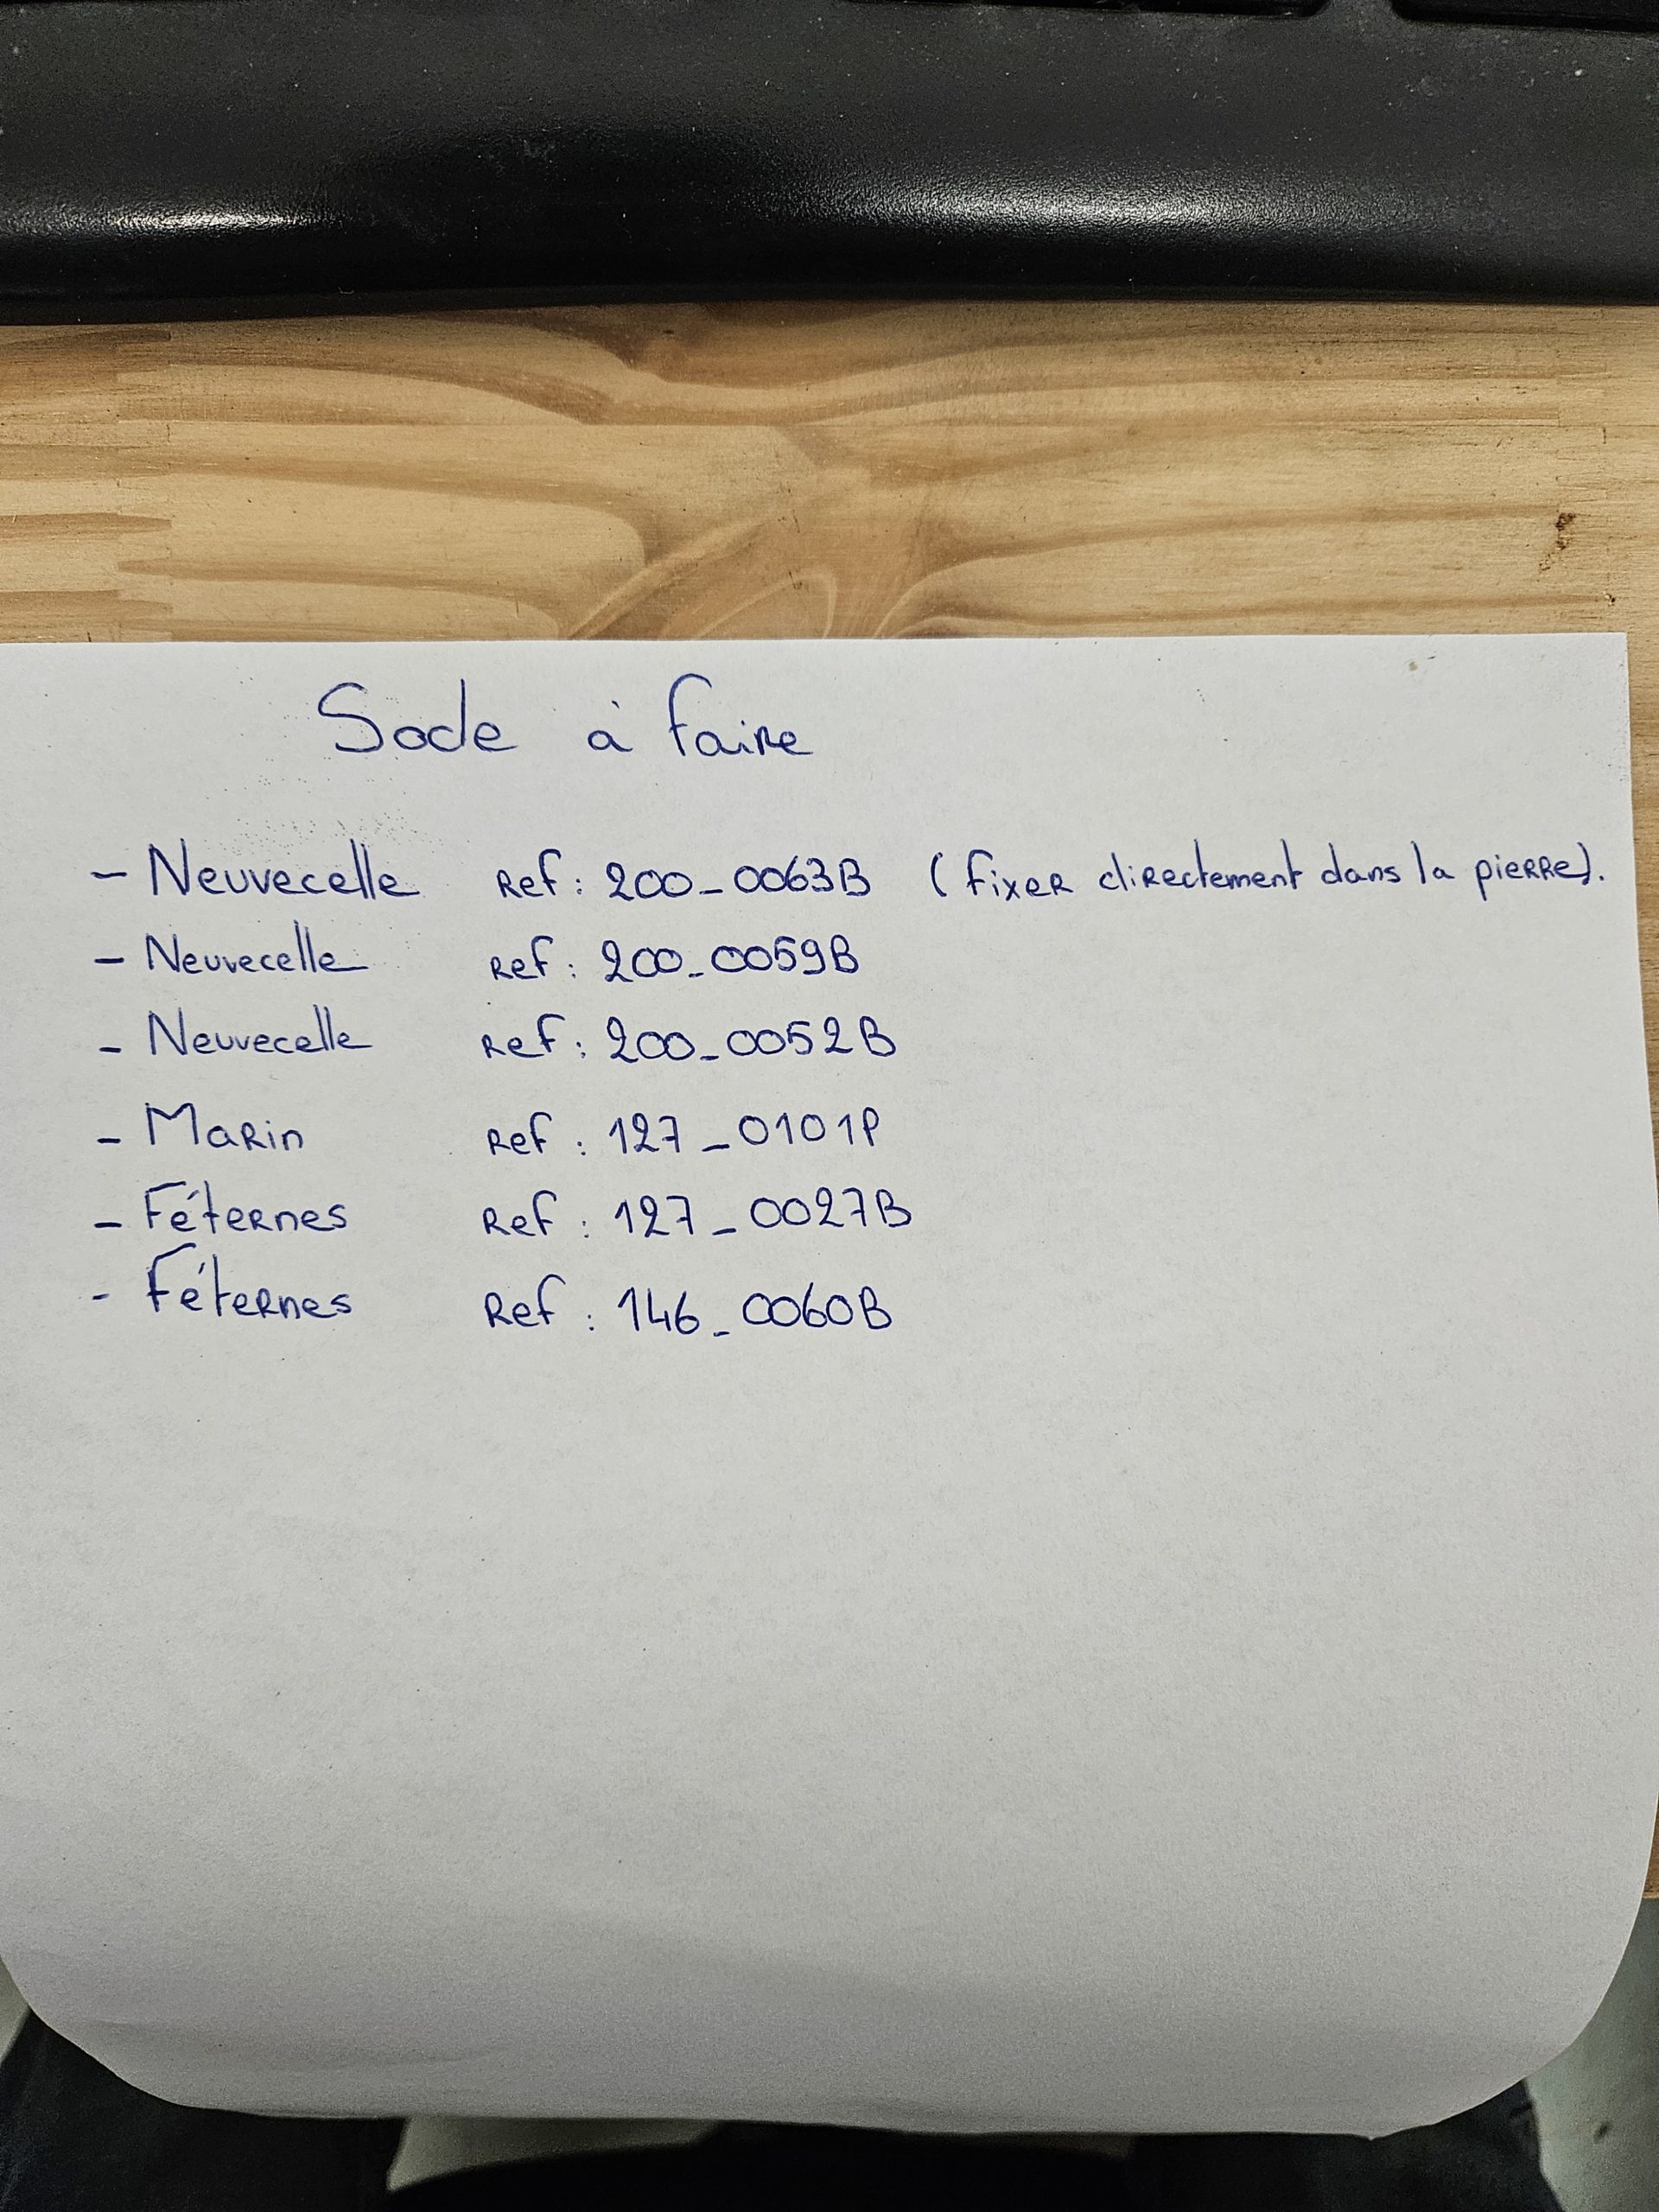 Socle à faire
- Neuvecelle Ref : 200_0063B (fixer directement dans la pierre).
- Neuvecelle Ref : 200_0059B
- Neuvecelle Ref : 200_0052B
- Marin Ref : 127_0101P
- Féternes Ref : 127_0027B
- Féternes Ref : 146_0060B